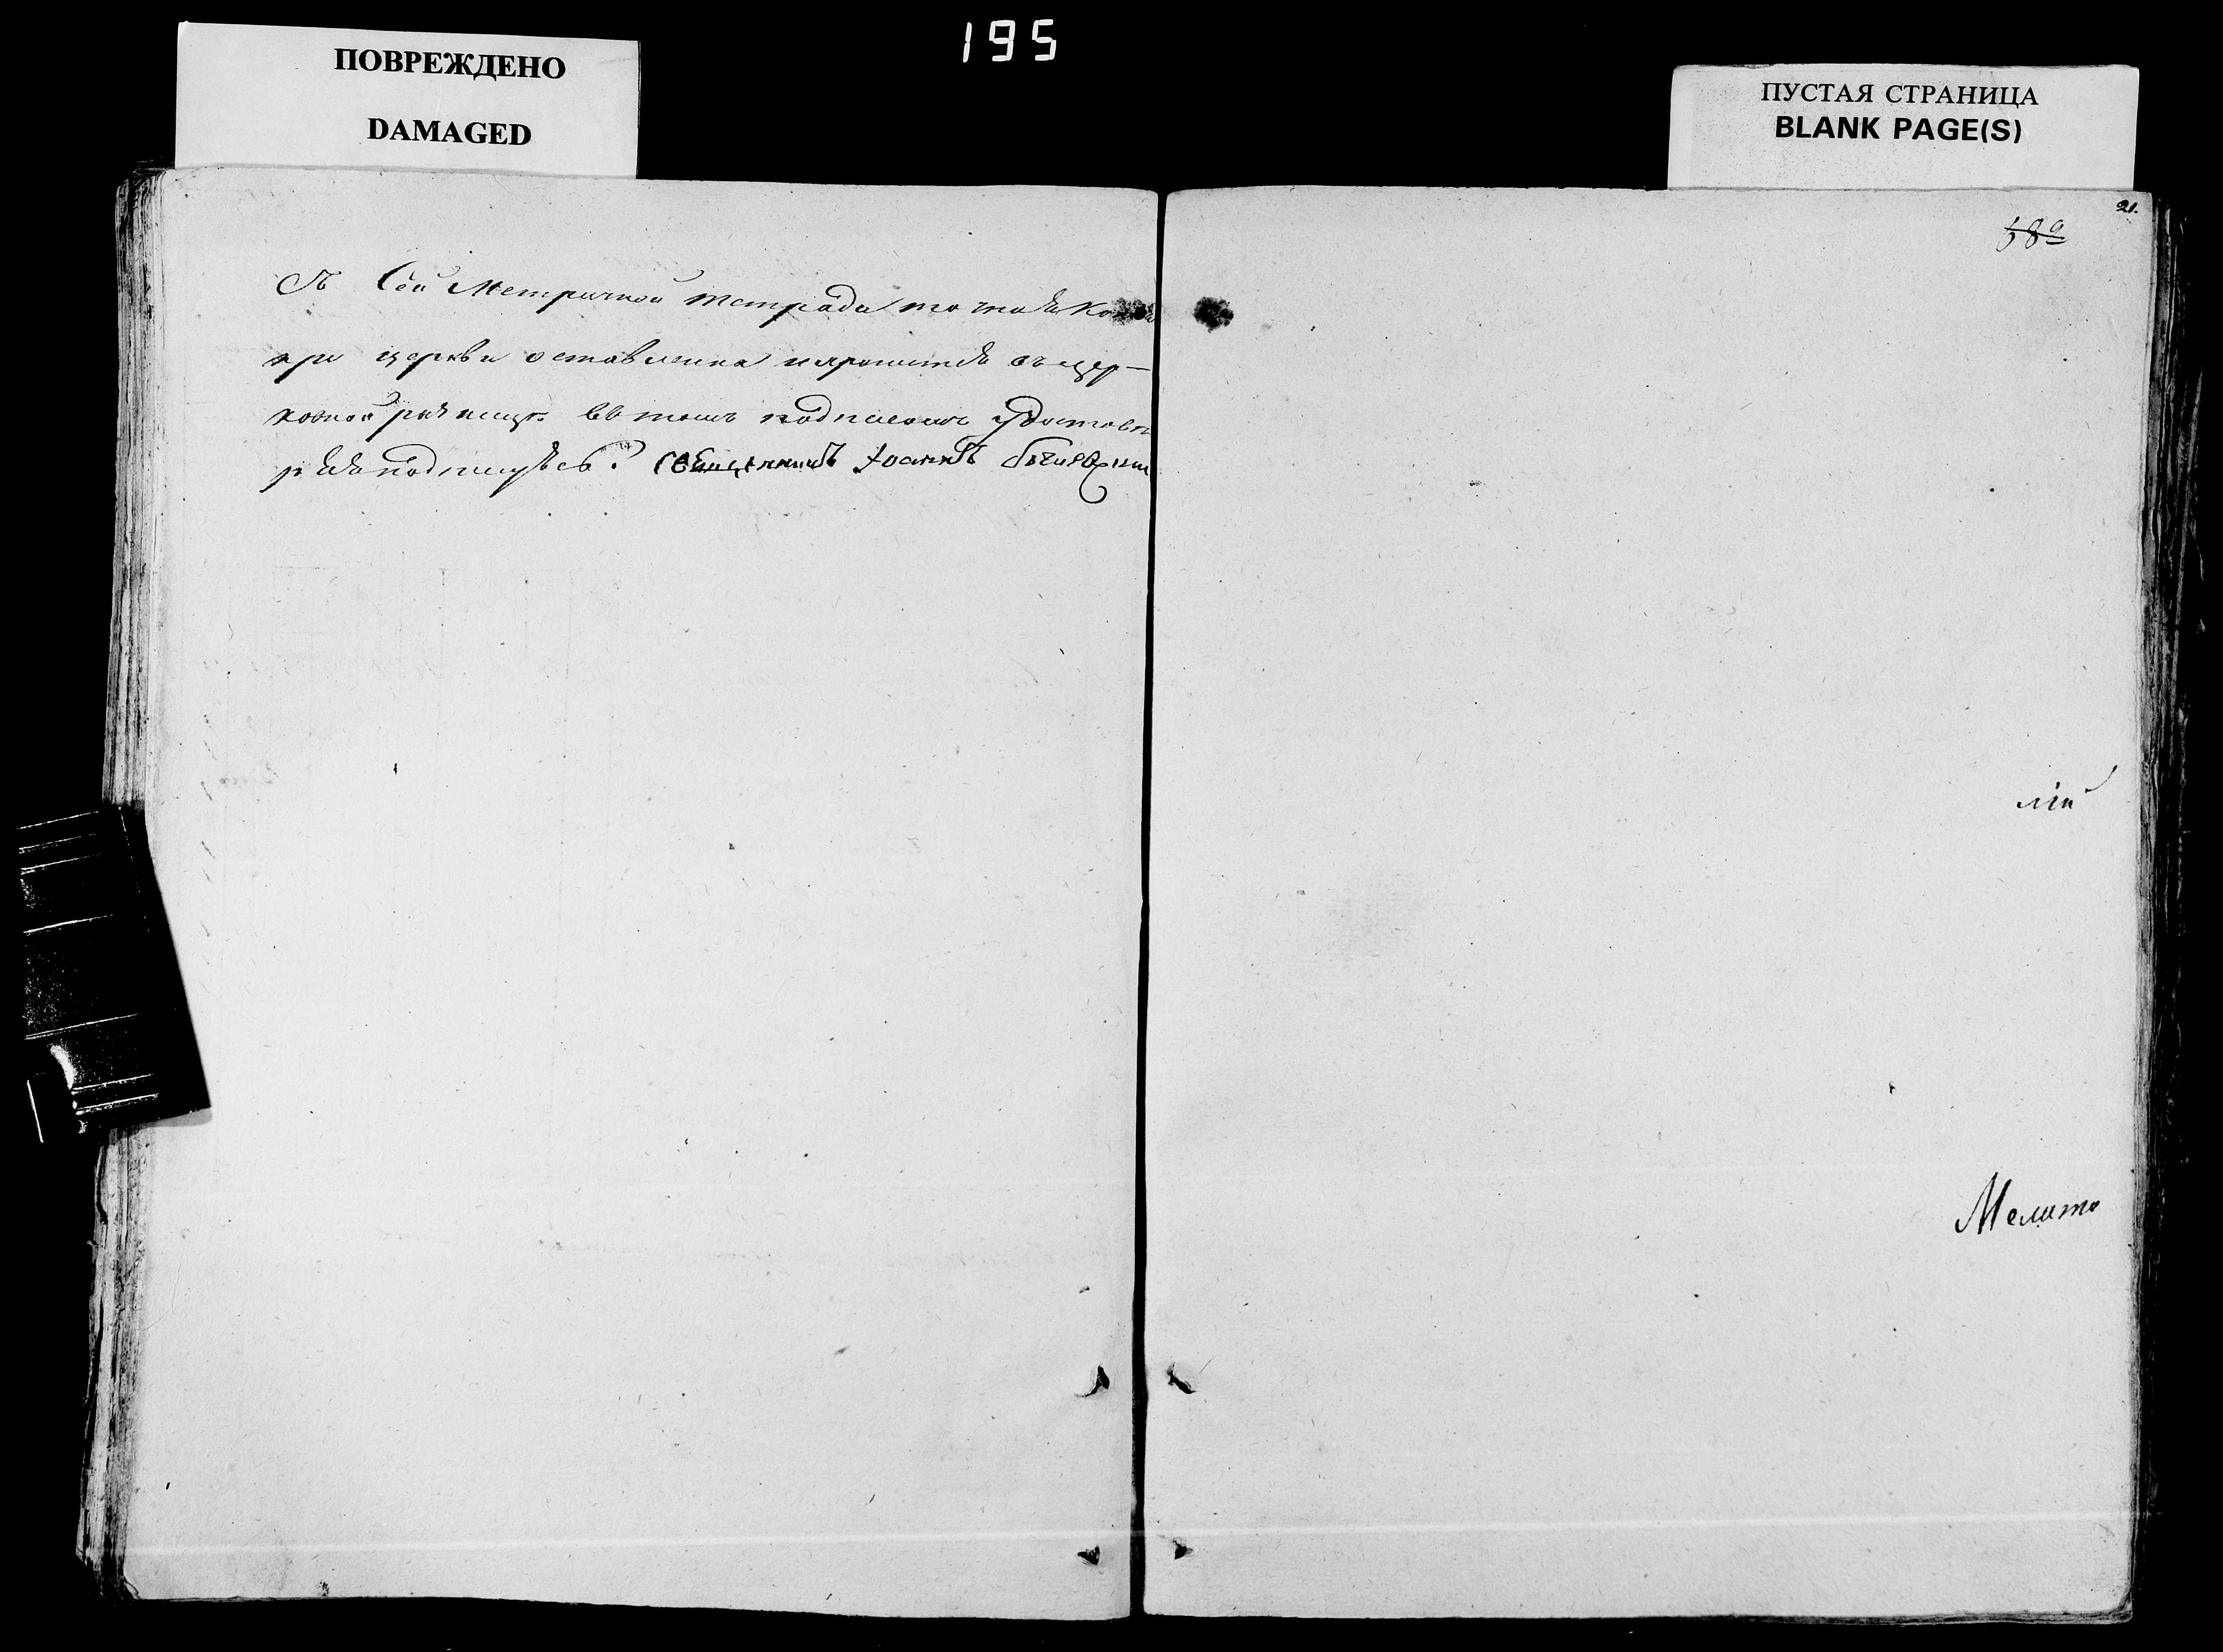 195
ПОВРЕЖДЕНО
DAMAGED
ПУСТАЯ СТРАНИЦА
BLANK PAGE(S)
21.
Съ Сей Метричной тетради точная копия
при церкви оставлена и хранится въ цер-
ковной ризницѣ въ томъ подписомъ удостовѣ
ряя подписуюсь. Священникъ Іоаннъ
лій
Мелито